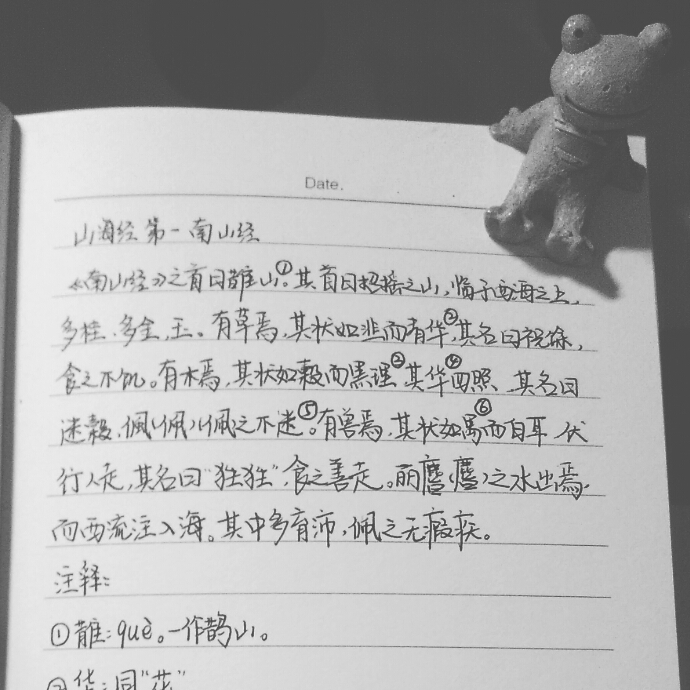 Date.
山海经第一南山经
《南山经》之首曰䧿山①。其首曰招摇之山,临于西海之上,
多桂、多金、玉。有草焉,其状如韭而青华②,其名曰祝馀,
食之不饥。有木焉,其状如榖而黑理③,其华四照④,其名曰
迷榖,佩(佩)佩之不迷⑤。有兽焉,其状如禺⑥而白耳,伏
行人走,其名曰“狌狌”,食之善走。丽𪊨(𪊨)之水出焉,
而西流注入海。其中多育沛,佩之无瘕疾。
注释:
①䧿:què。一作鹊山。
②华:同“花”